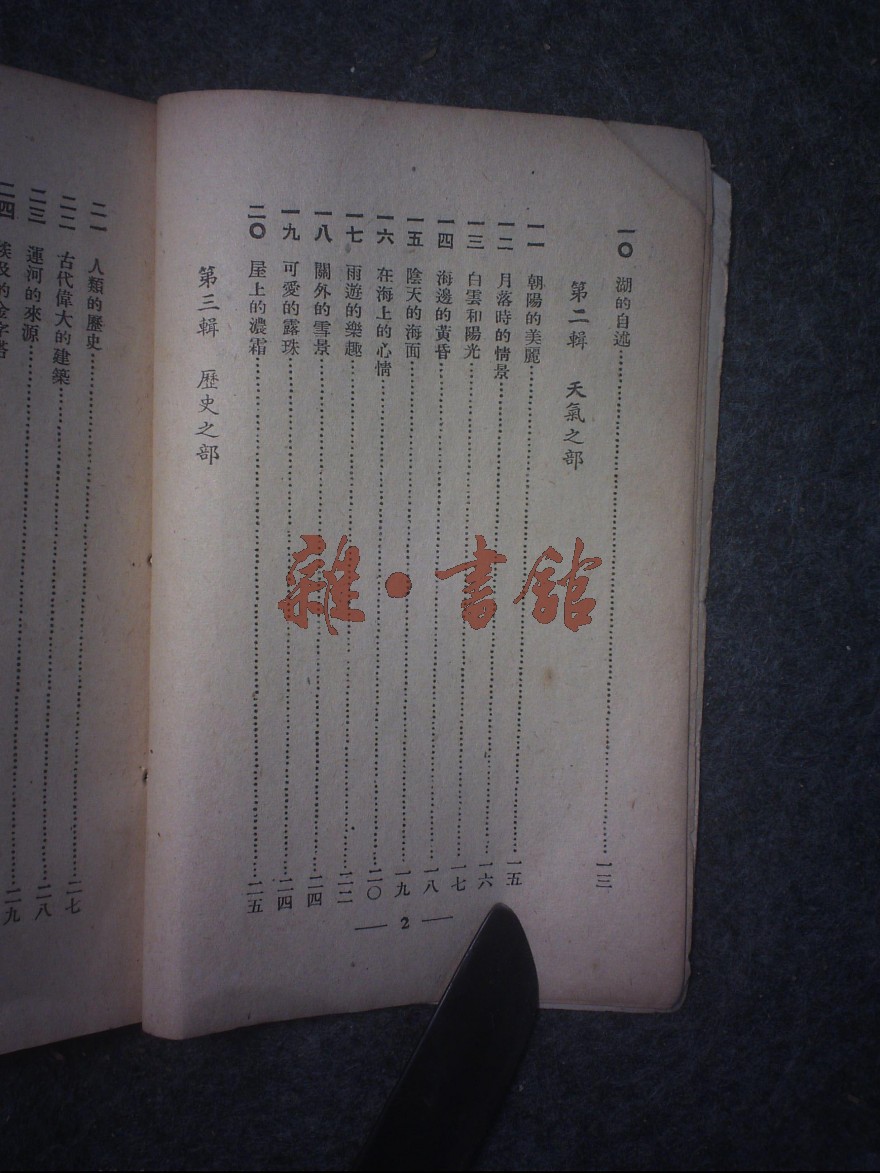 一〇 湖的自述……一三
第二輯 天氣之部
一一 朝陽的美麗……一五
一二 月落時的情景……一六
一三 白雲和陽光……一七
一四 海邊的黃昏……一八
一五 陰天的海面……一九
一六 在海上的心情……二〇
一七 雨遊的樂趣……二二
一八 關外的雪景……二四
一九 可愛的露珠……二四
二〇 屋上的濃霜……二五
第三輯 歷史之部
— 2 —
二一 人類的歷史……二七
二二 古代偉大的建築
二三 運河的來源……二八
二四 埃及的金字塔……二九
雜·書館